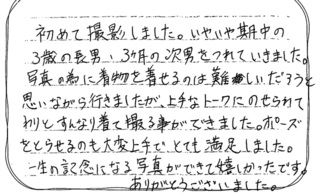 初めて撮影しました。いやいや期中の
3歳の長男、3ヶ月の次男をつれていきました。
写真の為に着物を着せるのは難しいだろうと
思いながら行きましたが、上手なトークにのせられて
わりとすんなり着て撮る事ができました。ポーズ
をとらせるのも大変上手でとても満足しました。
一生の記念になる写真ができて嬉しかったです。
ありがとうございました。